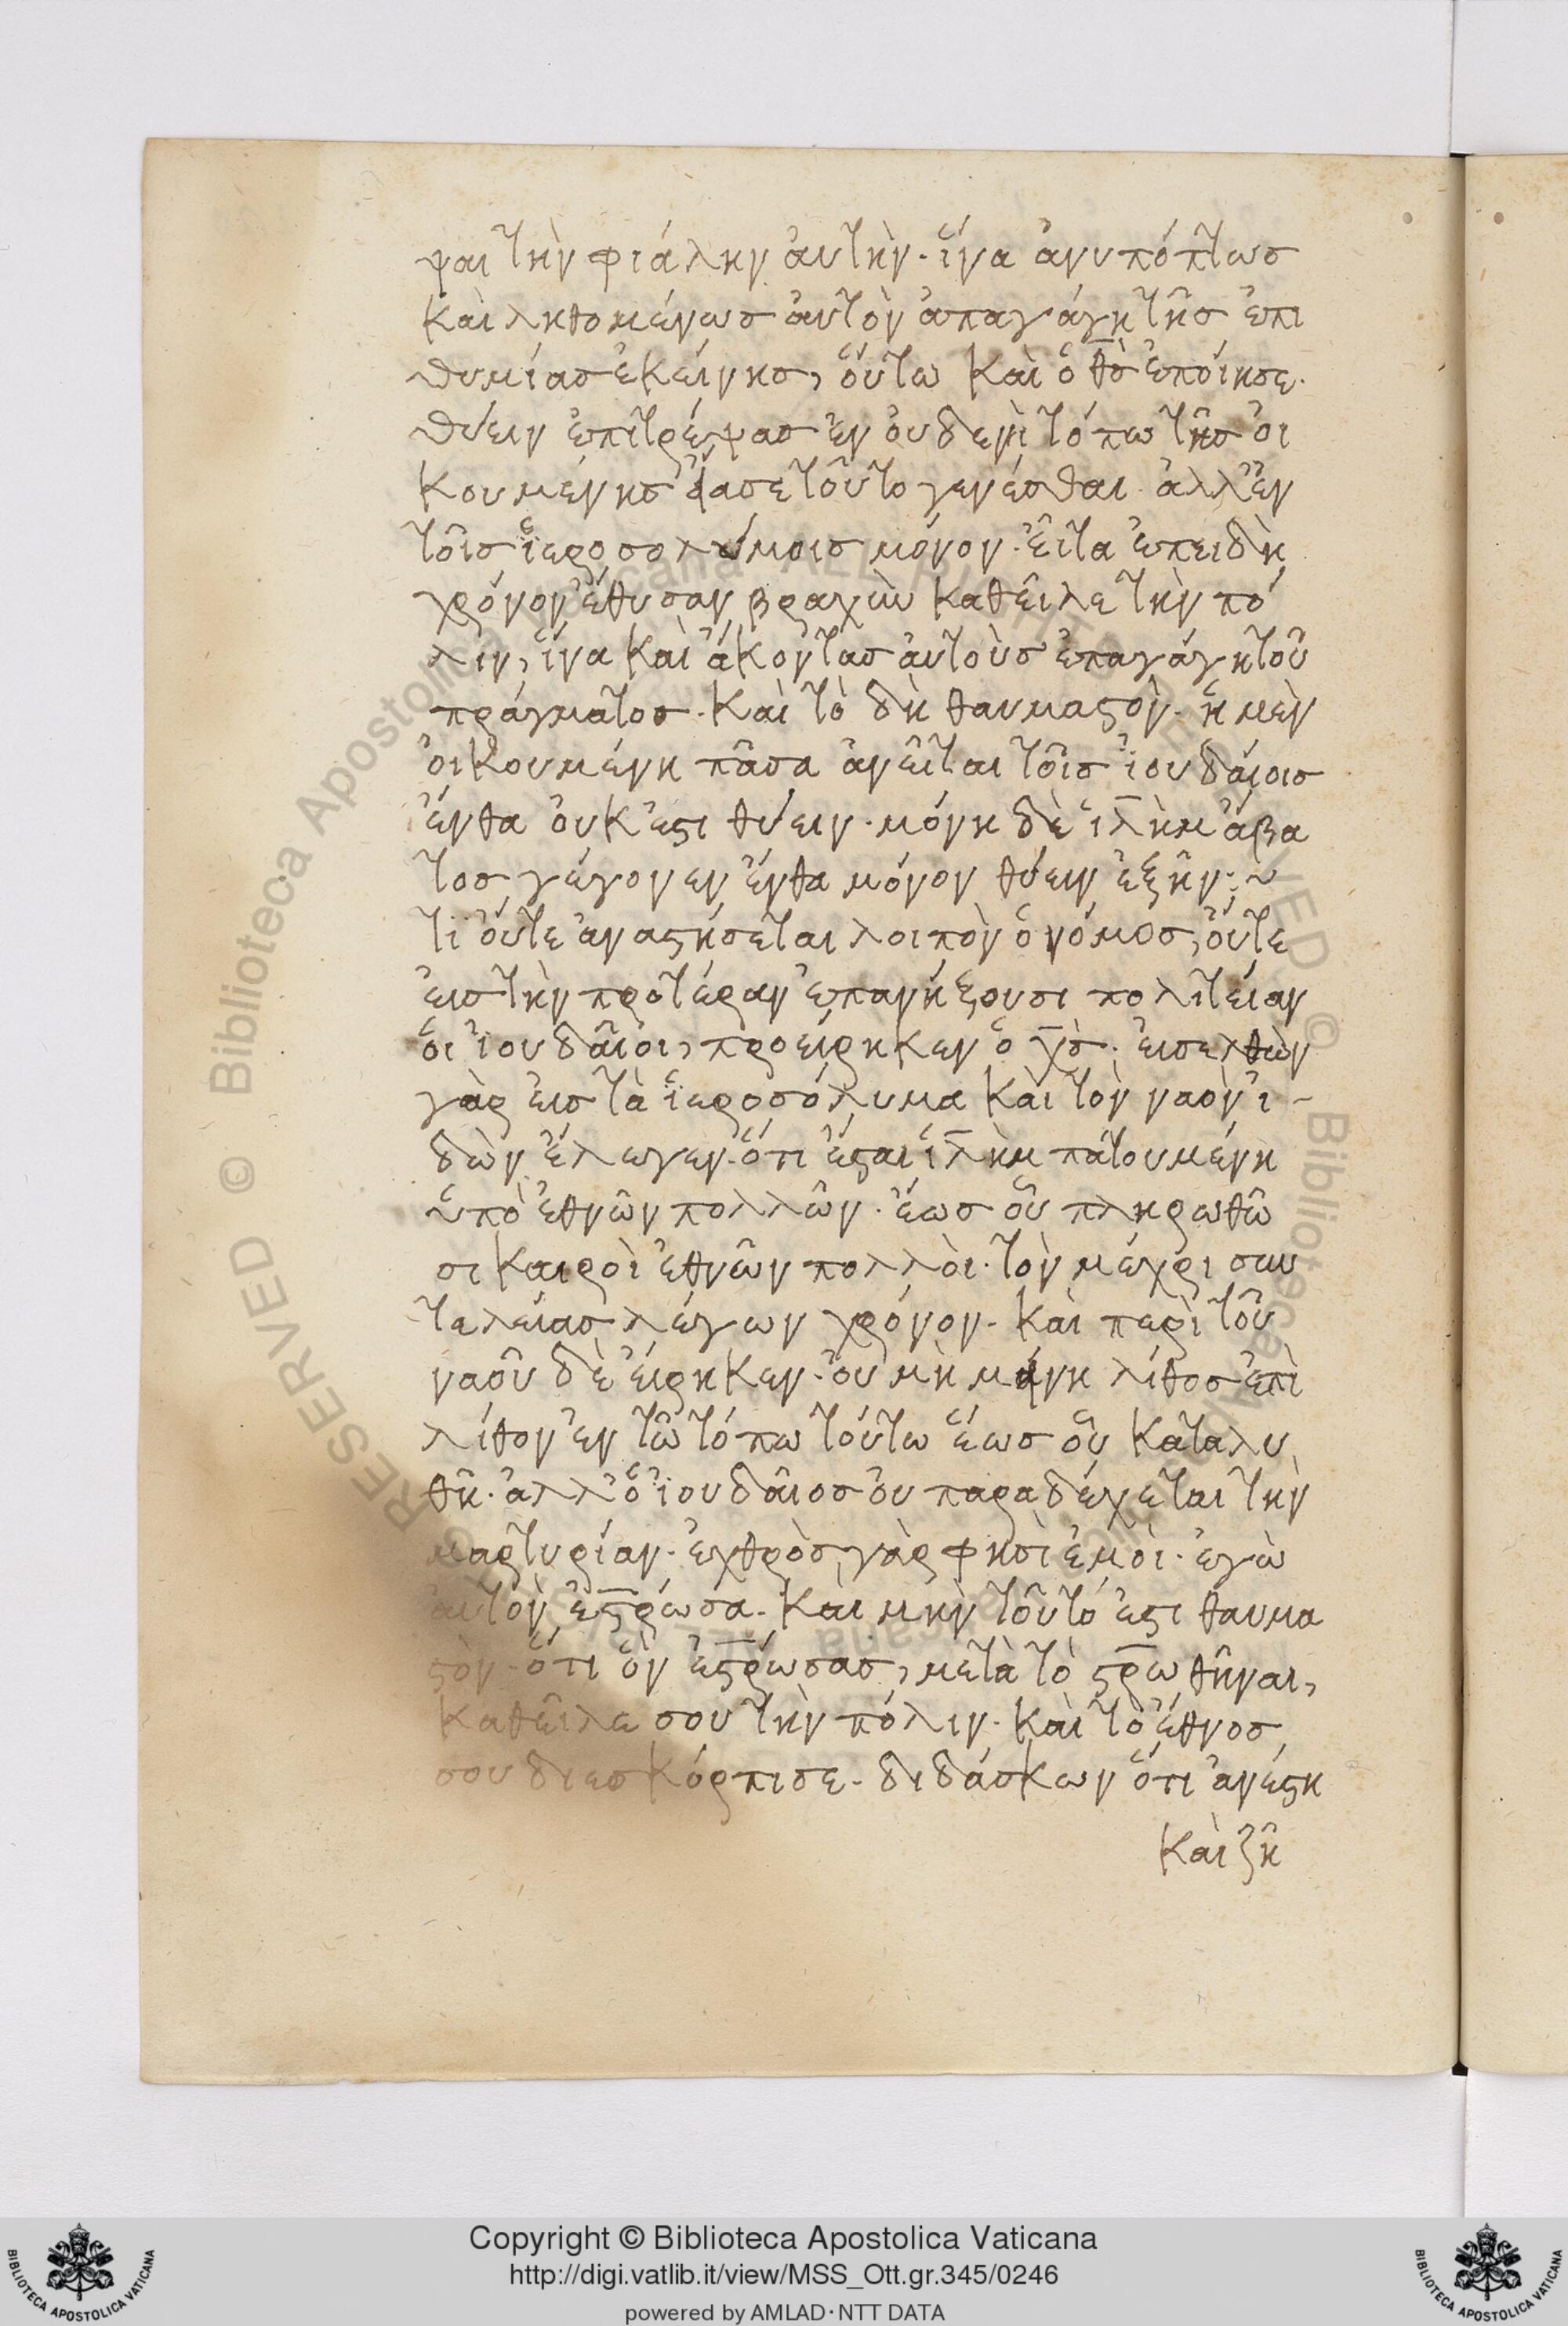 ψαι τὴν φιάλην ἀυτὴν. ἵνα ἀνυπόπτωσ
καὶ ληθομένωσ ἀυτὸν ἀπαγάγη τῆσ ἐπι
θυμίασ ἐκείνησ, ὅυτω καὶ ὁ θσ̄ ἐποίησε.
θύειν ἐπιτρέψασ ἐν ὀυδενὶ τόπω τῆσ ὀι
κουμένησ ἔασε τοῦτο γενέσθαι. ἀλλ' ἐν
τοῖσ ἱεροσολύμοισ μόνον. εἶτα ἐπειδὴ
χρόνον ἔθυσαν βραχὺν καθεῖλε τὴν πό
λιν, ἵνα καὶ ἄκοντασ ἀυτοὺσ ἐπαγάγη τοῦ
πράγματοσ. καὶ τὸ δὴ θαυμαστὸν. ἡ μὲν
ὀικουμένη πᾶσα ἀνεῖται τοῖσ ἰουδάιοισ
ἔνθα ὀυκ ἔστι θύειν. μόνη δὲ ἱλ̄ὴμ ἄβα
τοσ γέγονεν ἔνθα μόνον θύειν ἐξῆν:~
τί ὄυτε ἀναστήσεται λοιπὸν ὁ νόμοσ, ὄυτε
ἐισ τὴν προτέραν ἐπανήξουσι πολιτείαν
ὁι ἰουδαῖοι, προείρηκεν ὁ χσ̄. ἐισελθὼν
γὰρ ἐισ τὰ ἱεροσόλυμα καὶ τὸν ναὸν ἰ-
δὼν ἔλεγεν. ὅτι ἔσται ἱλ̄ὴμ πατουμένη
ὑπὸ ἐθνῶν πολλῶν. ἕωσ οὗ πληρωθῶ
σι καιροὶ ἐθνῶν πολλὸι. τὸν μέχρι συν
τελείασ λέγων χρόνον. καὶ περὶ τοῦ
ναοῦ δὲ εἴρηκεν. ὀυ μὴ μείνη λίθοσ ἐπὶ
λίθον ἐν τῶ τόπω τούτω ἕωσ οὗ καταλυ
θῆ. ἀλλ' ὁ ἰουδαῖοσ ὀυ παραδέχεται τὴν
μαρτυρίαν. ἐχθρὸσ γὰρ φησὶ ἐμὸι. ἐγὼ
ἀυτὸν ἐσ̄τρωσα. καὶ μὴν τοῦτό ἐστι θαυμα
στὸν. ὅτι ὃν ἐσ̄τρωσασ, μετὰ τὸ σ̄τρωθῆναι,
καθεῖλε σου τὴν πόλιν. καὶ τὸ ἔθνοσ
σου διεσκόρπισε. διδάσκων ὅτι ἀνέστη
καὶ ζῆ
Copyright © Biblioteca Apostolica Vaticana
http://digi.vatlib.it/view/MSS_Ott.gr.345/0246
powered by AMLAD · NTT DATA